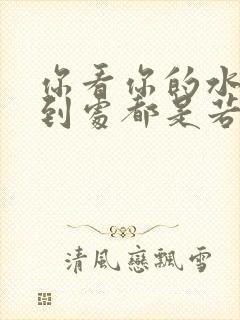 你看你的水
到處都是若
清風戀飄雪